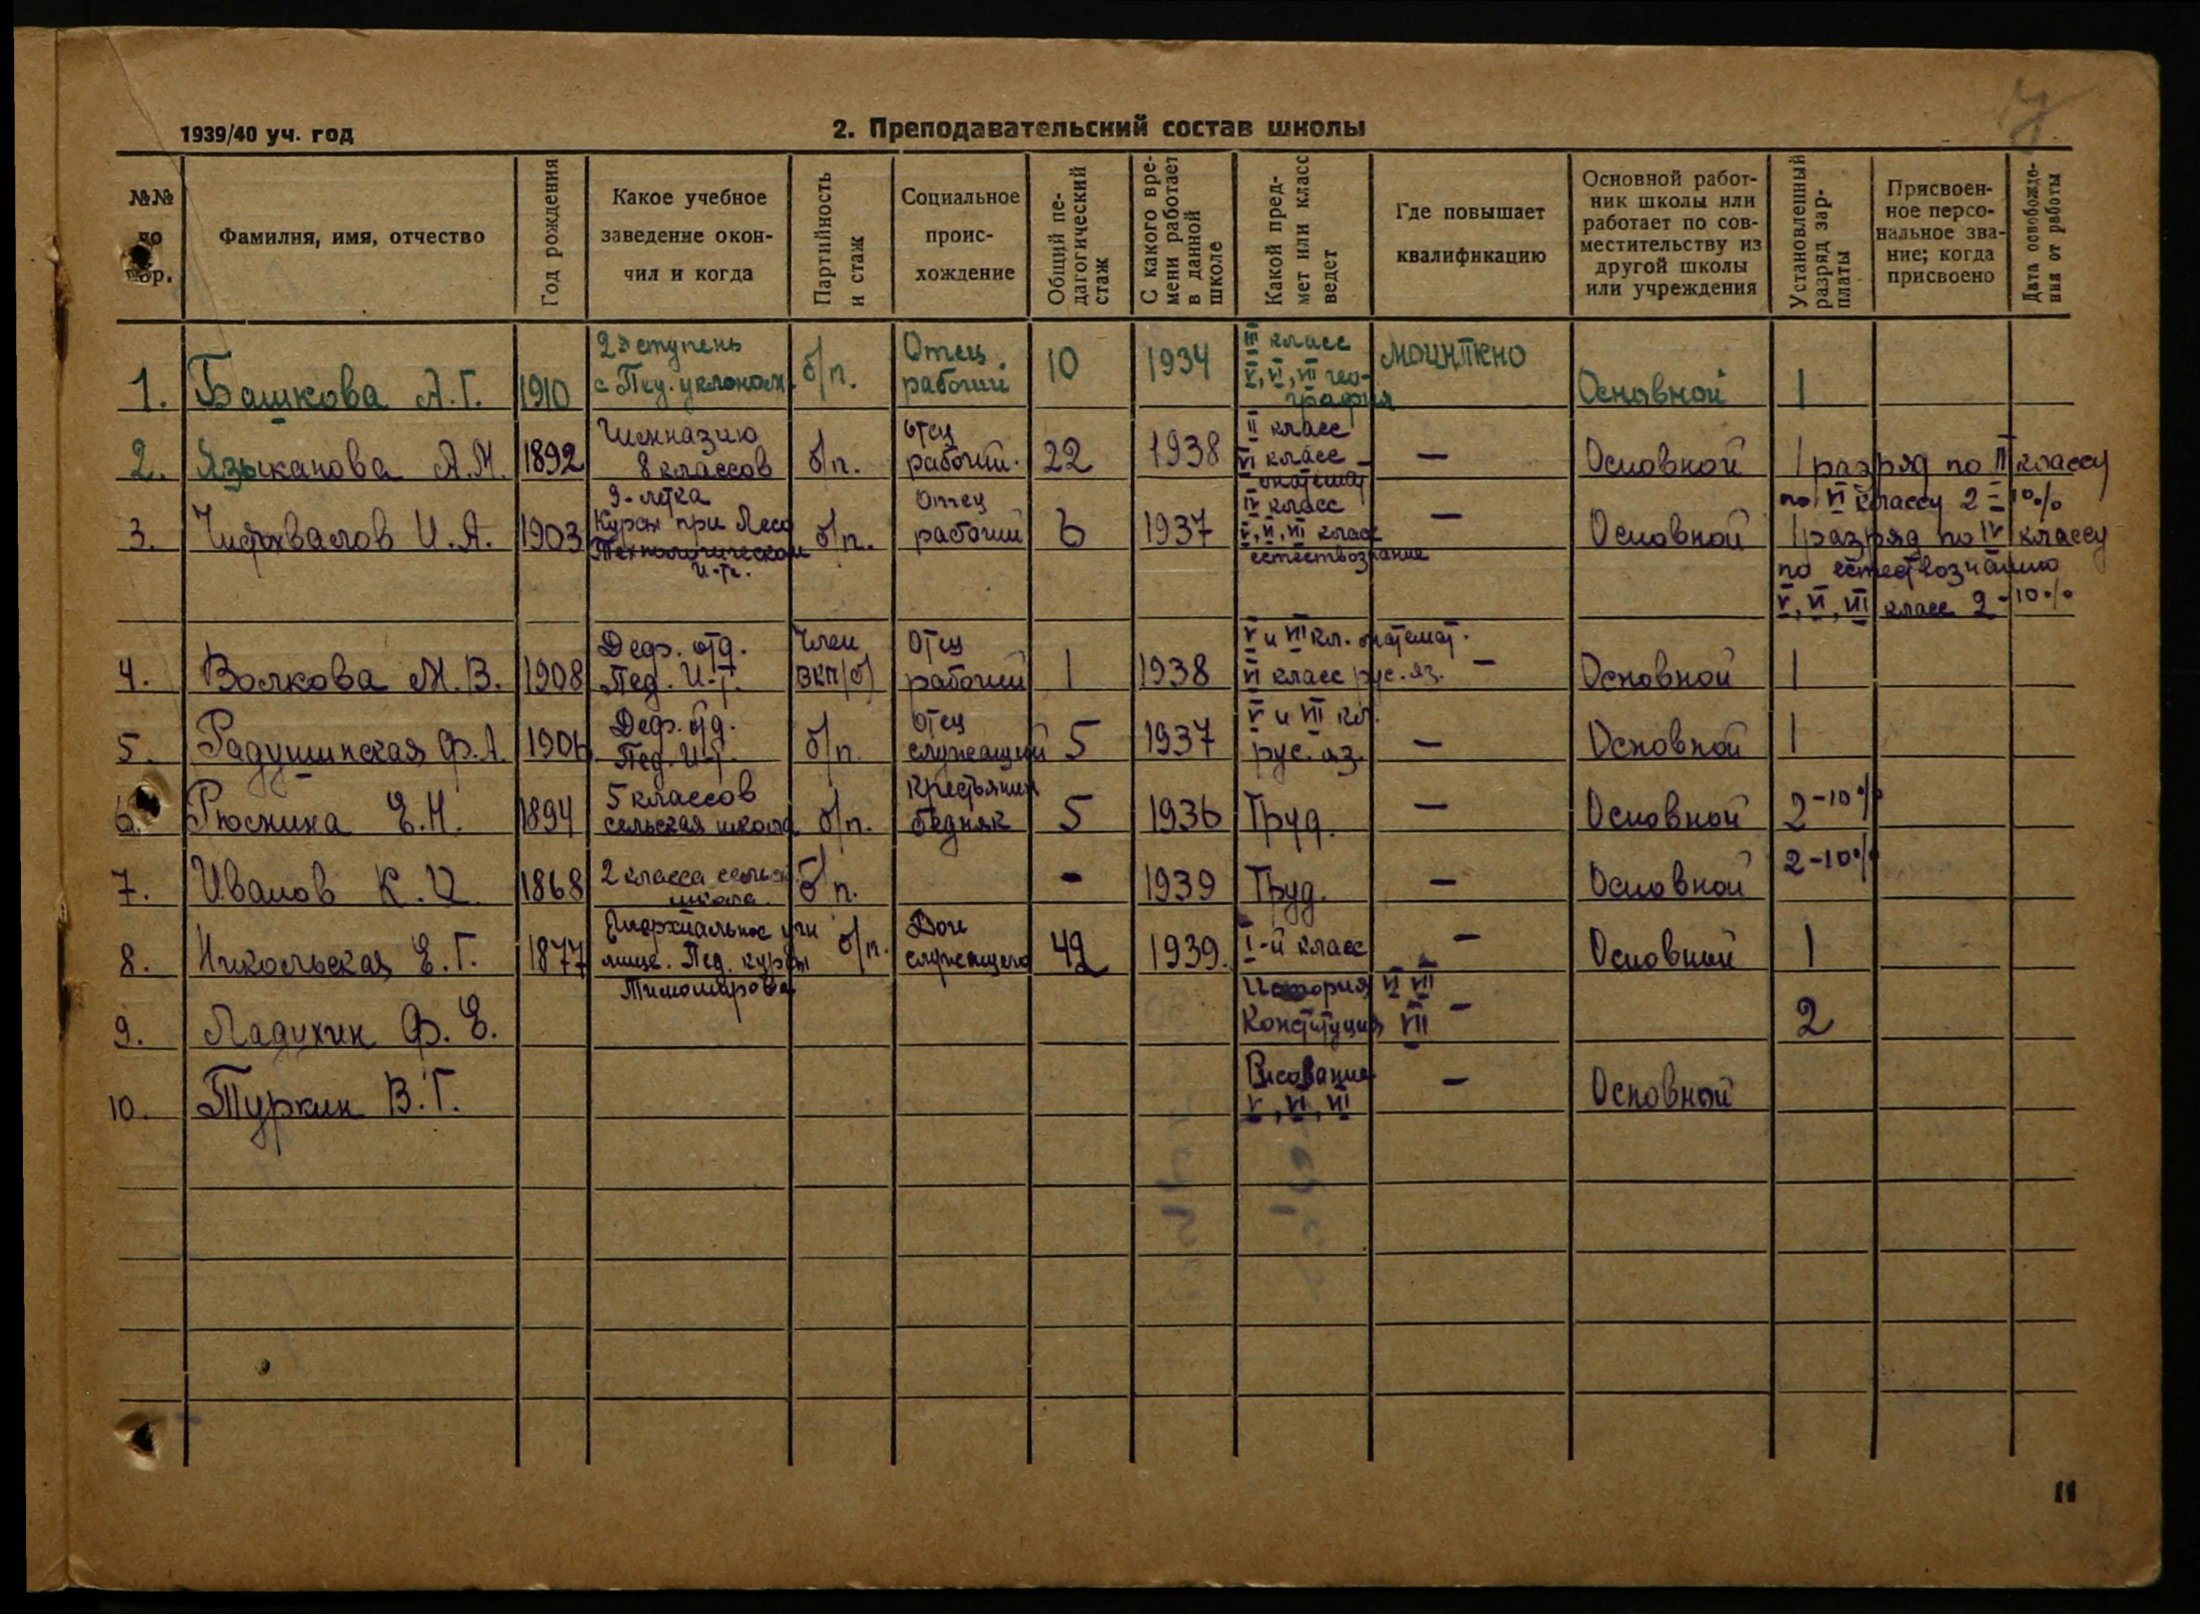 1939/40 уч. год
2. Преподавательский состав школы
№№ по пор.
Фамилия, имя, отчество
Год рождения
Какое учебное заведение окончил и когда
Партийность и стаж
Социальное происхождение
Общий педагогический стаж
С какого времени работает в данной школе
Какой предмет или класс ведет
Где повышает квалификацию
Основной работник школы или работает по совместительству из другой школы или учреждения
Установленный разряд зарплаты
Присвоенное персональное звание; когда присвоено
Дата освобождения от работы
1. Башкова А.Г. 1910 2я ступень с Пед. уклоном. б/п. Отец рабочий 10 1934 III класс V, VI, VII география Основной 1
2. Языканова А.М. 1892 Гимназию 8 классов б/п. отец рабочий. 22 1938 II класс VI класс математ — Основной 1 разряд по II классу
по VI классу 2 - 10%
3. И.А. 1903 9-летка Курсы при Лесо Технологическом И-те. б/п. Отец рабочий 6 1937 IV класс V, VI, VII класс естествознание — Основной 1 разряд по IV классу
по естествознанию
V, VI, VII класс 2 - 10%
4. Волкова М.В. 1908 Деф. отд. Пед. И-т. Член ВКП(б) Отец рабочий 1 1938 V и VII кл. математ. VI класс рус. яз. — Основной 1
5. Радушинская Ф.А. 1906 Деф. отд. Пед. И-т. б/п. отец служащий 5 1937 V и VII кл. рус. яз. — Основной 1
6. Рюснина Е.Н. 1894 5 классов сельская школа б/п. крестьянин бедняк 5 1936 Труд. — Основной 2-10%
7. Иванов К.И. 1868 2 класса сельск школа. б/п. - 1939 Труд. — Основной 2-10%
8. Никольская Е.Г. 1877 Епархиальное учи лище. Пед. курсы Тихомирова б/п. Дочь служащего 42 1939. I-й класс — Основной 1
9. Ладухин Ф.Е. История VI VII Конституция VII — 2
10. Туркин В.Г. Рисование V, VI, VII — Основной
11